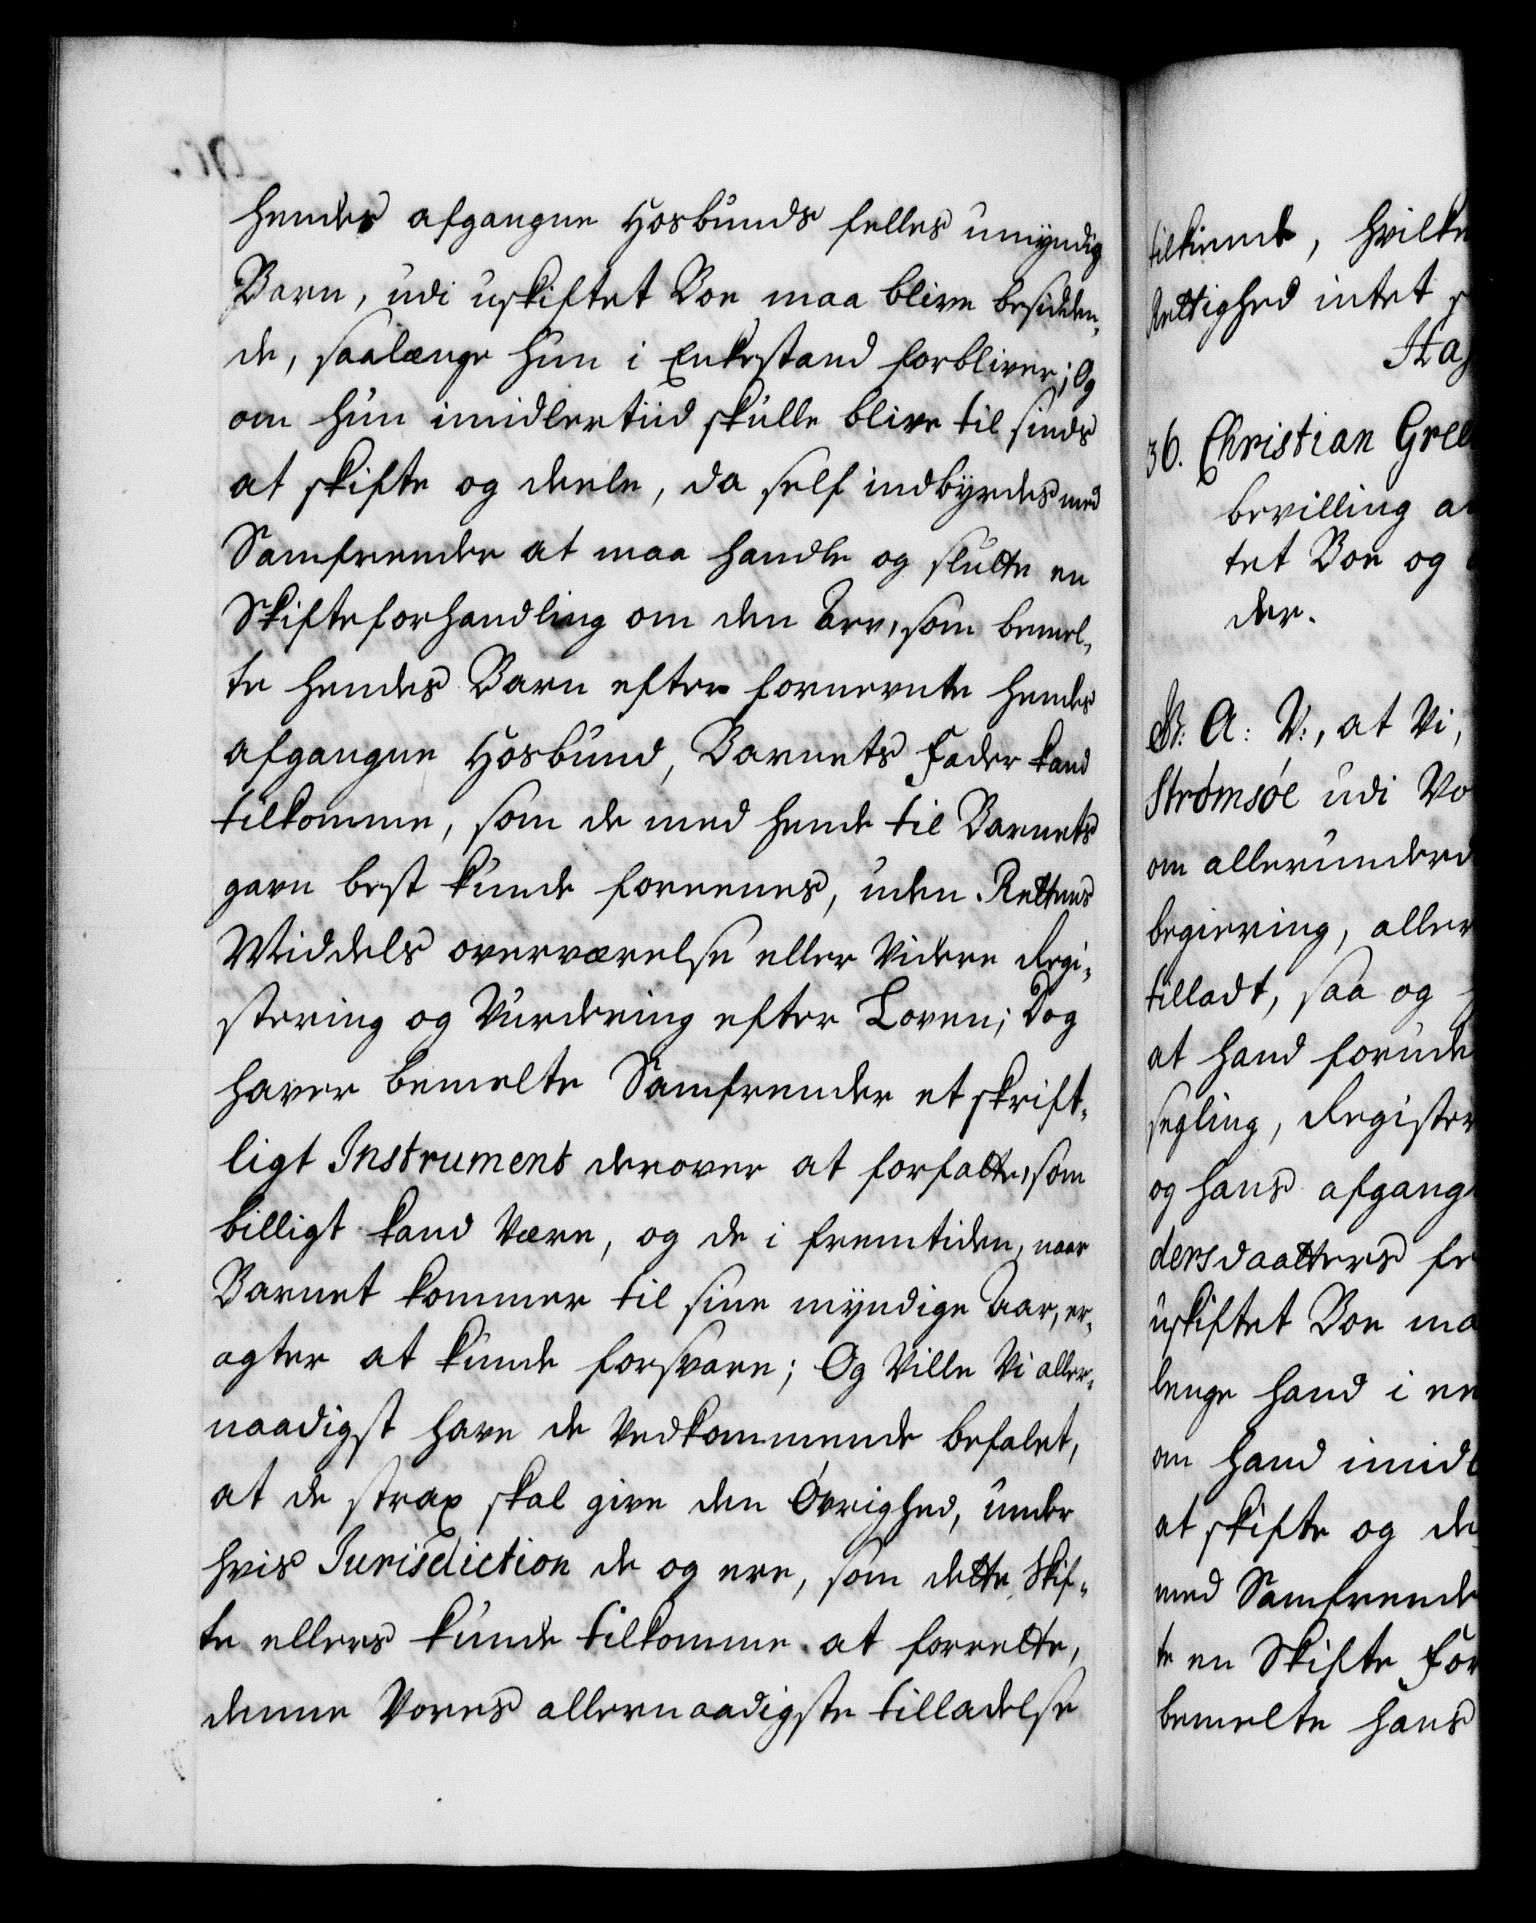 hendes afgangne Hosbunds felles umyndig
Barn, udi uskiftet Boe maa blive besidden,
de, saalænge hun i Enkestand forbliver; Og
om hun imidlertiid skulle blive til sinds
at skifte og deele, da self indbyrdes med
Samfrender at maa handle og slutte en
Skifteforhandling om den Arv, som bemel,
te hendes Barn efter fornevnte hendes
afgangne Hosbund, Barnets Fader kand
tilkomme, som de med hende til Barnets
gavn best kunde foreenes, uden Rettens
Middels overværelse eller Videre Regi,
stering og Vurdering efter Loven; Dog
haver bemelte Samfrender et skrift,
ligt Instrument derover at forfatte, som
billigt kand være, og de i fremtiden, naar
Barnet kommer til sine myndige Aar, er,
agter at kunde forsvare; Og Ville Vi aller,
naadigst have de Vedkommende befalet,
at de strax skal give den Øvrighed, under
hvis Jurisdiction de og ere, som dette Skif,
te ellers kunde tilkomme at forrette,
denne Vores allernaadigste tilladelse
tilkiende, hvilke
Rettighed intet
Hag
36. Christian Grell
bevilling a
tet Boe og
der.
B: A: V:, at Vi,
Strømsøe udi Vo
om allerunderd
begiering, aller
tilladt, saa og
at hand foruden
segling, Register
og hans afgang
dersdaatters fe
uskiftet Boe ma
lenge hand i en
om hand imidl
at skifte og de
med Samfrende
te en Skifte For
bemelte hans